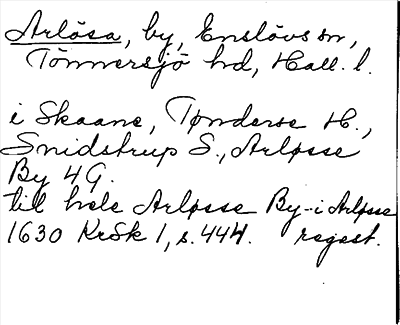 Arlösa, by, Enslövs sn,
Tönnersjö hd, Hall. l.
i Skaane, Tønderse H.,
Snidstrup S., Arløsse
By 4 G.
til hele Arløsse By - i Arløsse
1630 KrSk 1, s. 444. regest.